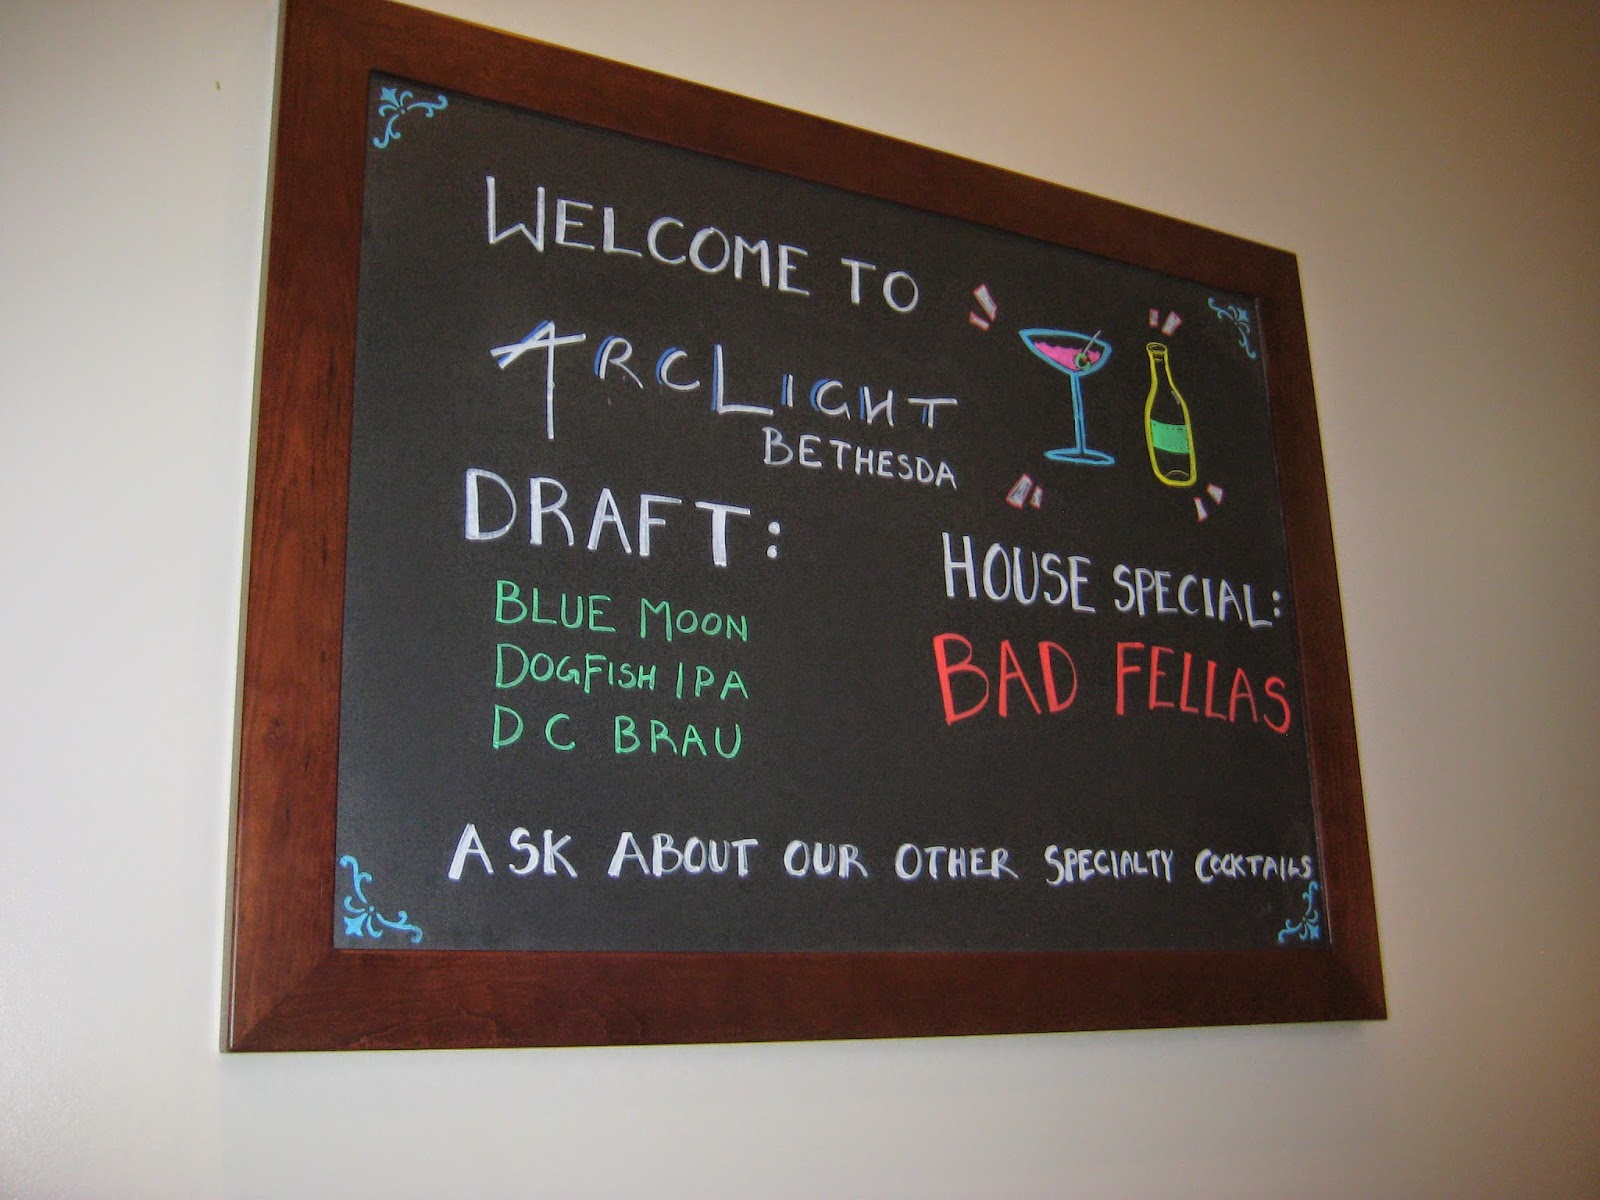 WELCOME TO
ARCLIGHT
BETHESDA
DRAFT:
BLUE MOON
DOGFISH IPA
DC BRAU
HOUSE SPECIAL:
BAD FELLAS
ASK ABOUT OUR OTHER SPECIALTY COCKTAILS